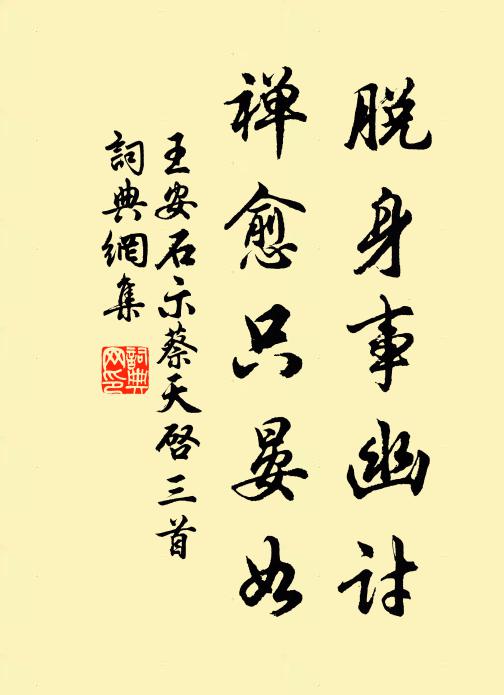 脱身事幽討
禪愈只晏如
王安石示蔡天啓三首
詞典網集
詞典网印